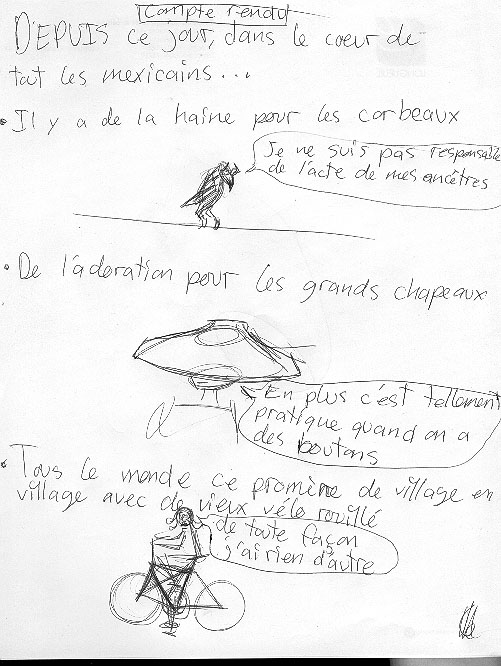 Compte rendu
DEPUIS ce jour, dans le coeur de
tout les mexicains...
• Il y a de la haîne pour les corbeaux
Je ne suis pas responsable
de l'acte de mes ancêtres
• De l'adoration pour les grands chapeaux
En plus c'est tellement
pratique quand on a
des boutons
• Tous le monde ce promène de village en
village avec de vieux vélo rouillé
de toute façon
j'ai rien d'autre